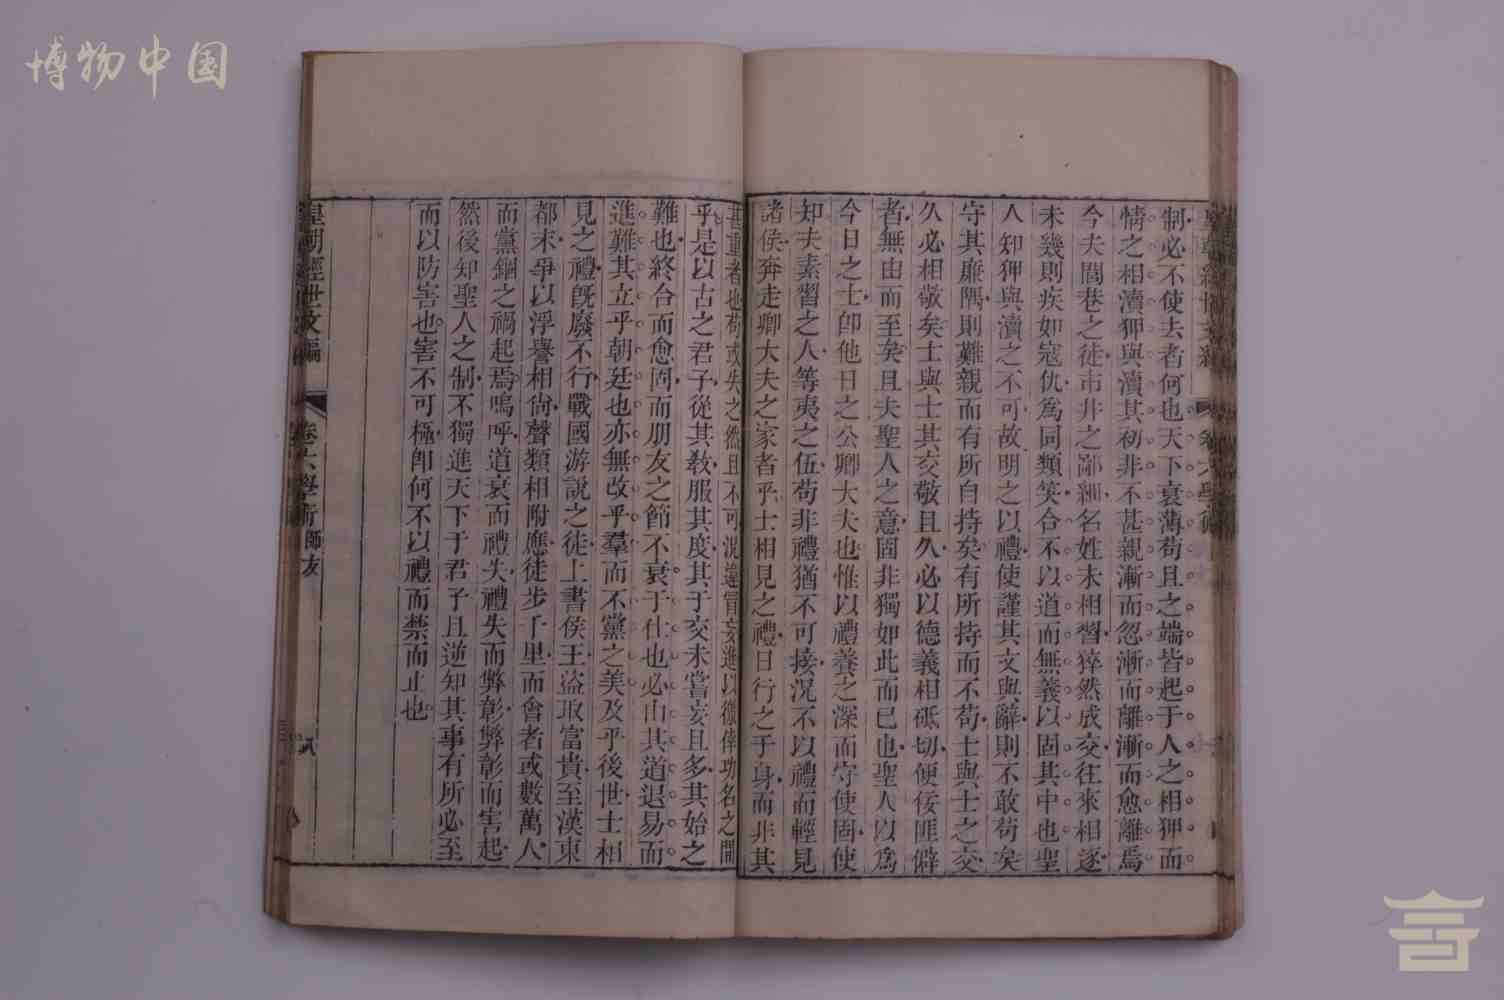 博物中国
制必不使去者何也天下衰薄苟且之端皆起于人之相狎而
情之相瀆狎與瀆其初非不甚親漸而忽漸而離漸而愈離焉
今夫閭巷之徒市井之鄙細名姓未相習猝然成交往來相逐
未幾則疾如寇仇為同類笑合不以道而無義以固其中也聖
人知狎與瀆之不可故明之以禮使謹其文與辭則不敢苟矣
守其廉隅則難親而有所自持矣有所持而不苟士與士之交
久必相敬矣士與士其交敬且久必以德義相砥切便佞匪僻
者無由而至矣且夫聖人之意固非獨如此而已也聖人以為
今日之士卽他日之公卿大夫也惟以禮養之深而守使固使
知夫素習之人等夷之伍苟非禮猶不可接況不以禮而輕見
諸侯奔走卿大夫之家者乎士相見之禮日行之于身而非其
甚重者也苟或失之然且不可況違冒妄進以徼倖功名之開
乎是以古之君子從其敎服其度其于交未嘗妄且多其始之
難也終合而愈固而朋友之節不衰于仕也必由其道退易而
進難其立乎朝廷也亦無改乎羣而不黨之美及乎後世士相
見之禮旣廢不行戰國游說之徒上書侯王盜取富貴至漢東
都末爭以浮譽相尙聲類相附應徒步千里而會者或數萬人
而黨錮之禍起焉嗚呼道衰而禮失禮失而弊彰弊彰而害起
然後知聖人之制不獨進天下于君子且逆知其事有所必至
而以防害也害不可極卽何不以禮而禁而止也
皇朝經世文編 卷六學術師友 八